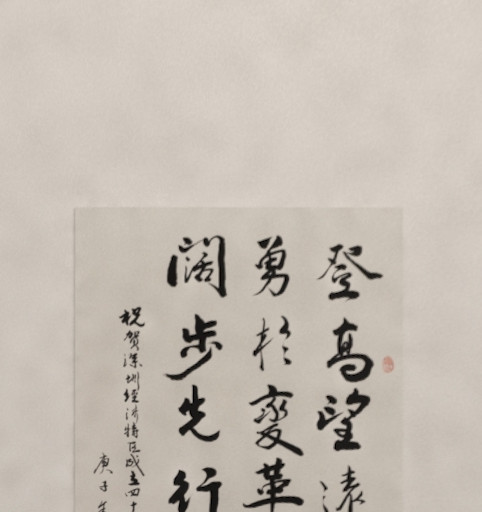 登高望遠
勇於變革
闊步先行
祝賀深圳經濟特区成立四十
庚子年